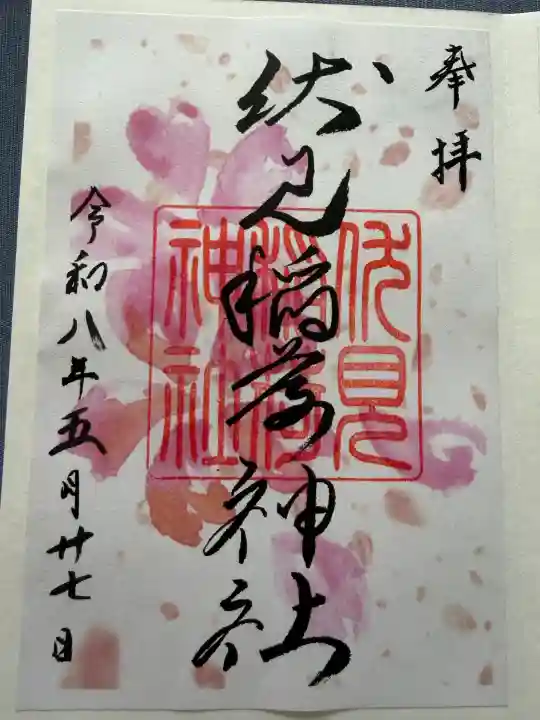 奉拝
伏見稲荷神社
伏見
稲荷
神社
令和八年五月廿七日